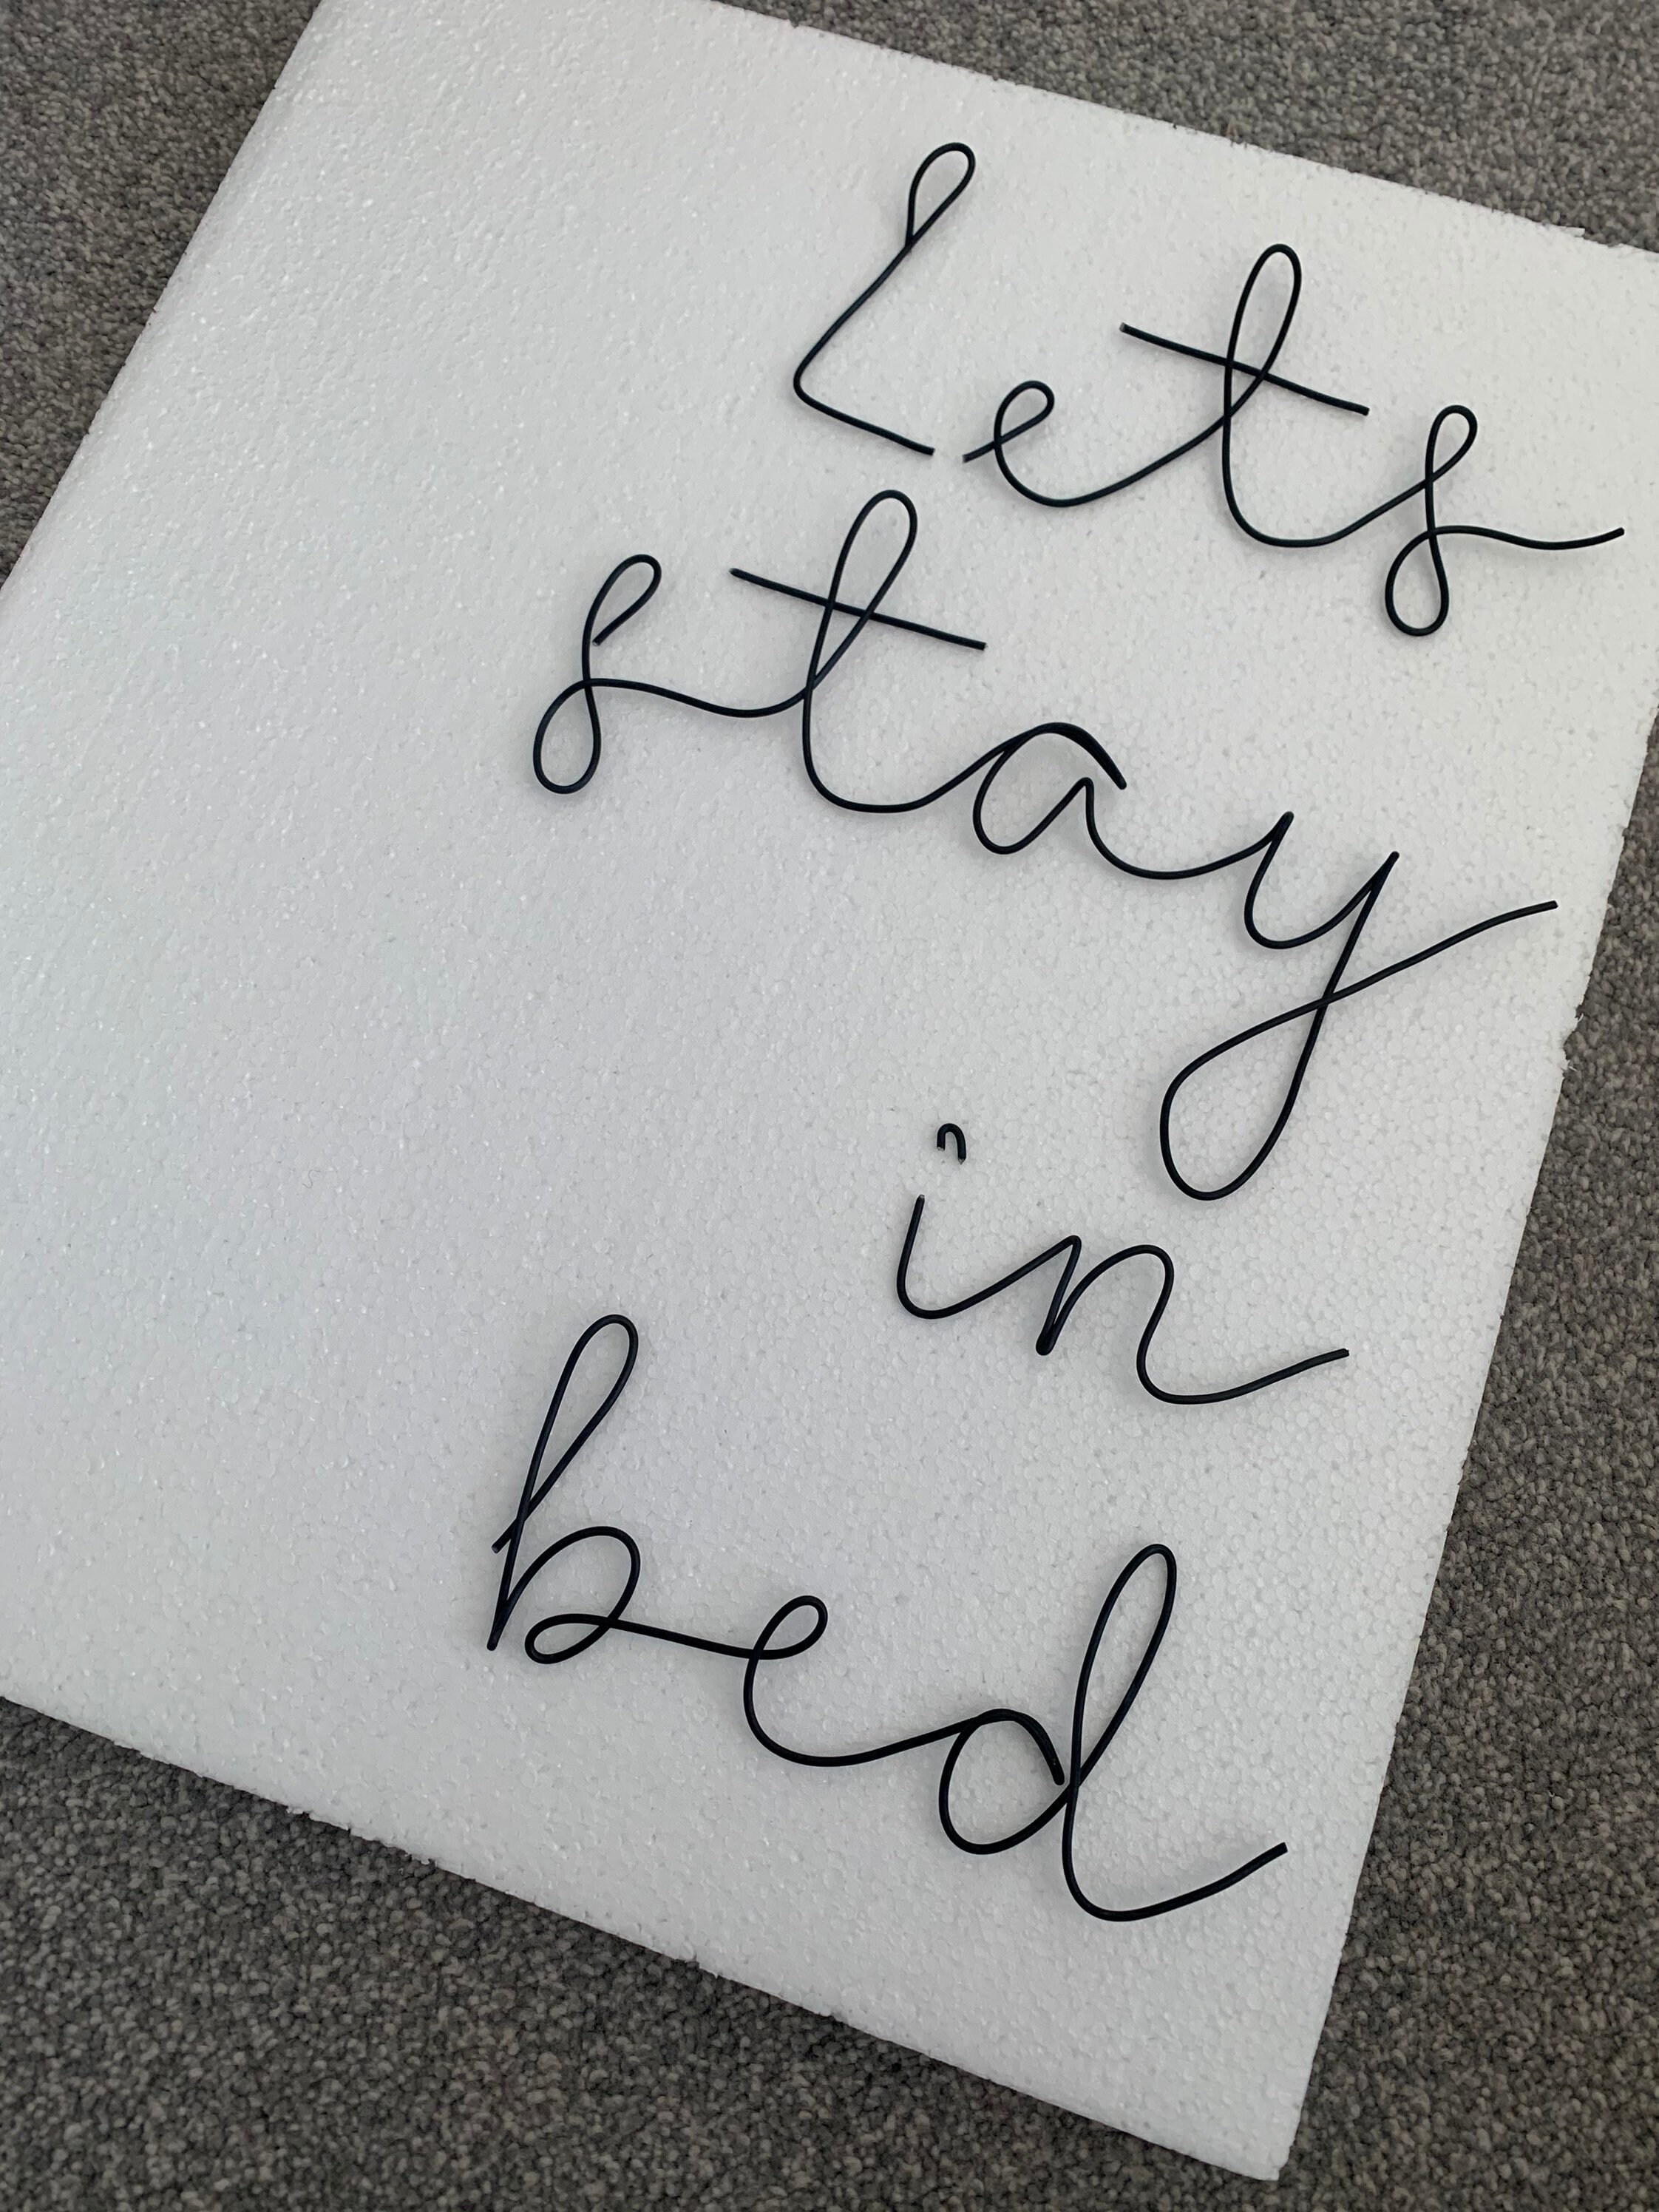 Lets
stay
in
bed